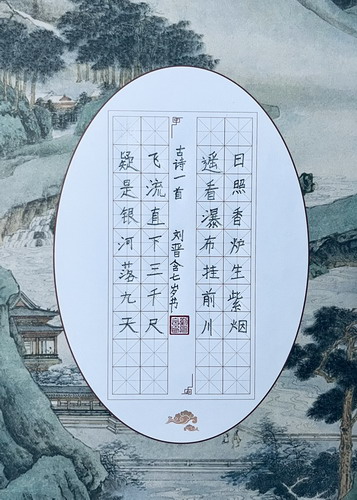 日照香炉生紫烟
遥看瀑布挂前川
古诗一首 刘晋含七岁书
飞流直下三千尺
疑是银河落九天